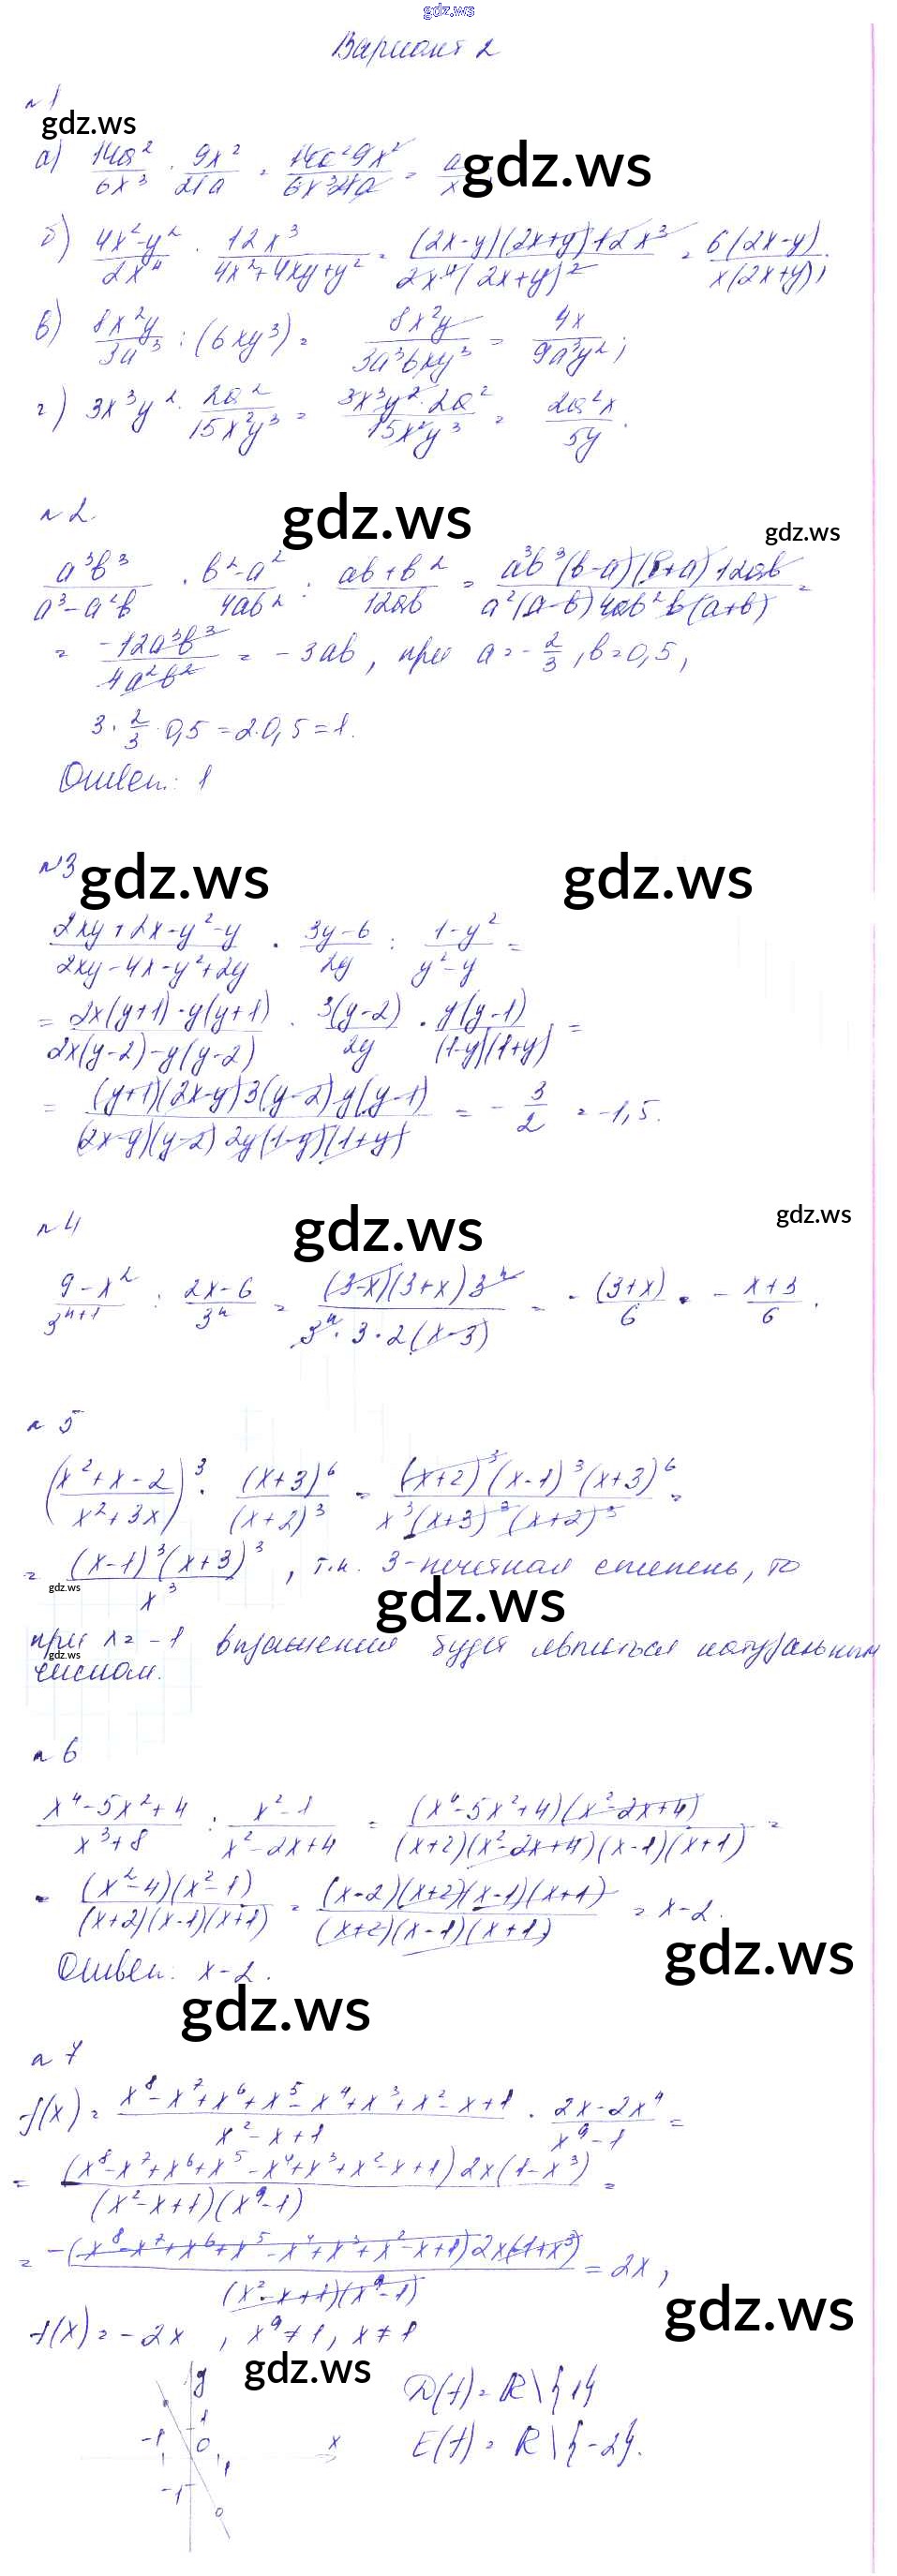 gdz.ws
Вариант 2
№1
gdz.ws
а) 14a²/6x³ · 9x²/21a = 14a²9x²/6x³21a = a/x gdz.ws
б) 4x²-y²/2x⁴ · 12x³/4x²+4xy+y² = (2x-y)(2x+y)12x³/2x⁴(2x+y)² = 6(2x-y)/x(2x+y);
в) 8x²y/3a³ : (6xy³) = 8x²y/3a³6xy³ = 4x/9a³y²;
г) 3x³y² · 2a²/15x²y³ = 3x³y²·2a²/15x²y³ = 2a²x/5y.
№2.
gdz.ws
gdz.ws
a³b³/a³-a²b · b²-a²/4ab² : ab+b²/12ab = a³b³(b-a)(b+a)12ab/a²(a-b)4ab²b(a+b) =
= -12a³b³/4a²b² = -3ab, при a=-2/3, b=0,5,
3·2/3·0,5=2·0,5=1.
Ответ: 1
№3 gdz.ws gdz.ws
2xy+2x-y²-y/2xy-4x-y²+2y · 3y-6/2y : 1-y²/y²-y =
= 2x(y+1)-y(y+1)/2x(y-2)-y(y-2) · 3(y-2)/2y · y(y-1)/(1-y)(1+y) =
= (y+1)(2x-y)3(y-2)y(y-1)/(2x-y)(y-2)2y(1-y)(1+y) = -3/2 = -1,5.
№4 gdz.ws gdz.ws
9-x²/3ⁿ⁺¹ : 2x-6/3ⁿ = (3-x)(3+x)3ⁿ/3ⁿ·3·2(x-3) = -(3+x)/6 = -x+3/6.
№5
(x²+x-2/x²+3x)³ · (x+3)⁶/(x+2)³ = (x+2)³(x-1)³(x+3)⁶/x³(x+3)³(x+2)³ =
= (x-1)³(x+3)³/x³, т.к. 3-нечетная степень, то
gdz.ws
gdz.ws
при x=-1 выражение будет являться натуральным
gdz.ws
числом.
№6
x⁴-5x²+4/x³+8 : x²-1/x²-2x+4 = (x⁴-5x²+4)(x²-2x+4)/(x+2)(x²-2x+4)(x-1)(x+1) =
= (x²-4)(x²-1)/(x+2)(x-1)(x+1) = (x-2)(x+2)(x-1)(x+1)/(x+2)(x-1)(x+1) = x-2.
gdz.ws
Ответ: x-2.
gdz.ws
№7
f(x)= x⁸-x⁷+x⁶+x⁵-x⁴+x³+x²-x+1/x²-x+1 · 2x-2x⁴/x⁹-1 =
= (x⁸-x⁷+x⁶+x⁵-x⁴+x³+x²-x+1)2x(1-x³)/(x²-x+1)(x⁹-1) =
= -(x⁸-x⁷+x⁶+x⁵-x⁴+x³+x²-x+1)2x(-1+x³)/(x²-x+1)(x⁹-1) = 2x,
gdz.ws
f(x)=-2x, x⁹≠1, x≠1
gdz.ws
y
D(f)=R\{1}
1
-1 0 1 x
E(f)=R\{-2}.
-1